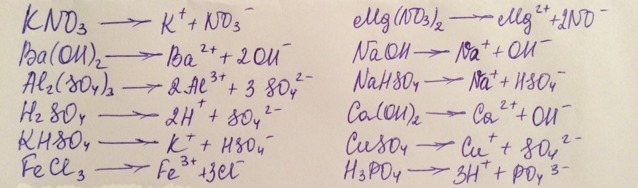 KNO₃ ⟶ K⁺ + NO₃⁻
Ba(OH)₂ ⟶ Ba²⁺ + 2OH⁻
Al₂(SO₄)₃ ⟶ 2Al³⁺ + 3 SO₄²⁻
H₂SO₄ ⟶ 2H⁺ + SO₄²⁻
KHSO₄ ⟶ K⁺ + HSO₄⁻
FeCl₃ ⟶ Fe³⁺ + 3Cl⁻
Mg(NO₃)₂ ⟶ Mg²⁺ + 2NO⁻
NaOH ⟶ Na⁺ + OH⁻
NaHSO₄ ⟶ Na⁺ + HSO₄⁻
Ca(OH)₂ ⟶ Ca²⁺ + OH⁻
CuSO₄ ⟶ Cu⁺ + SO₄²⁻
H₃PO₄ ⟶ 3H⁺ + PO₄³⁻